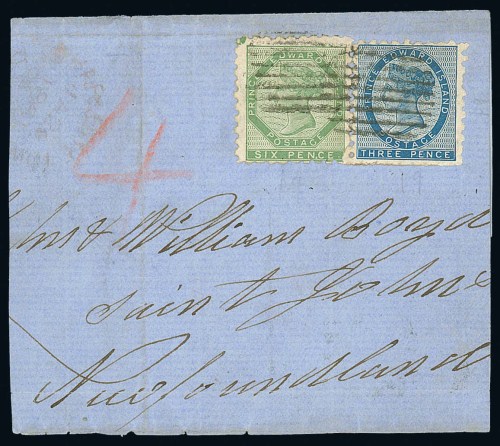 PRINCE EDWARD
POSTAGE
SIX PENCE
PRINCE EDWARD ISLAND
POSTAGE
THREE PENCE
4
& William Boyd
Saint Johns
Newfoundland